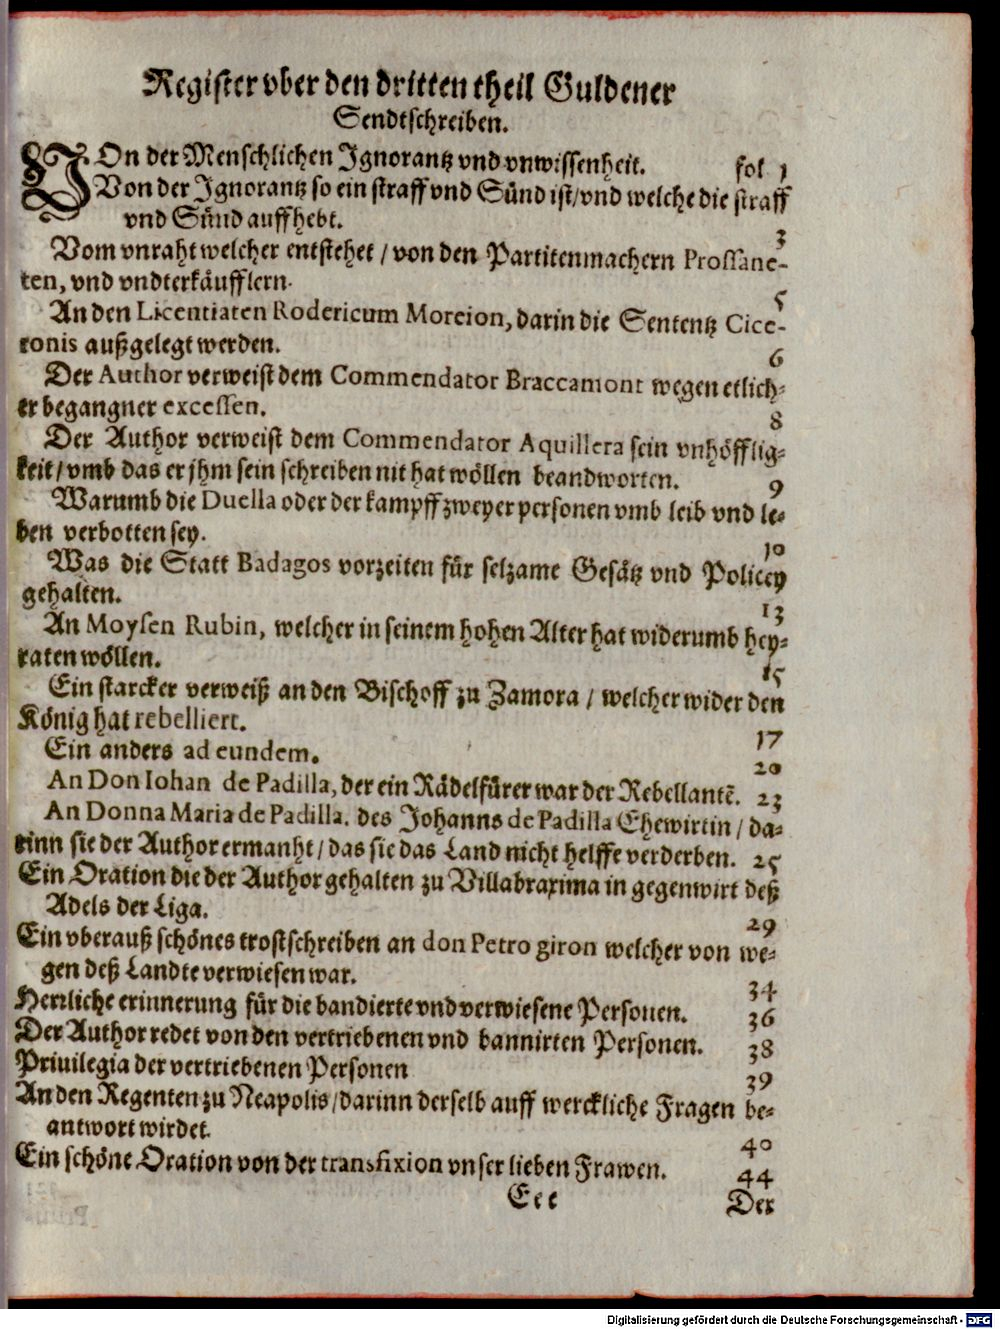 Register vber den dritten theil Guldener
Sendtschreiben.
VOn der Menschlichen Ignorantz vnd vnwissenheit. fol 1
Von der Ignorantz so ein straff vnd Sünd ist/vnd welche die straff
vnd Sünd auffhebt. 3
Vom vnraht welcher entstehet / von den Partitenmachern Prossane-
ten, vnd vndterkäufflern. 5
An den Licentiaten Rodericum Moreion, darin die Sententz Cice-
ronis außgelegt werden. 6
Der Author verweist dem Commendator Braccamont wegen etlich-
er begangner excessen. 8
Der Author verweist dem Commendator Aquillera sein vnhöfflig-
keit/vmb das er jhm sein schreiben nit hat wöllen beandworten. 9
Warumb die Duella oder der kampff zweyer personen vmb leib vnd le-
ben verbotten sey. 10
Was die Statt Badagos vorzeiten für selzame Gesätz vnd Policey
gehalten. 13
An Moysen Rubin, welcher in seinem hohen Alter hat widerumb hey-
raten wöllen. 15
Ein starcker verweiß an den Bischoff zu Zamora / welcher wider den
König hat rebelliert. 17
Ein anders ad eundem. 20
An Don Iohan de Padilla, der ein Rädelfürer war der Rebellantē. 23
An Donna Maria de Padilla. des Johanns de Padilla Ehewirtin / da-
rinn sie der Author ermanht/das sie das Land nicht helffe verderben. 25
Ein Oration die der Author gehalten zu Villabraxima in gegenwirt deß
Adels der Liga. 29
Ein vberauß schönes trostschreiben an don Petro giron welcher von we-
gen deß Landte verwiesen war. 34
Herrliche erinnerung für die bandierte vnd verwiesene Personen. 36
Der Author redet von den vertriebenen vnd bannirten Personen. 38
Priuilegia der vertriebenen Personen 39
An den Regenten zu Neapolis/darinn derselb auff werckliche Fragen be-
antwort wirdet. 40
Ein schöne Oration von der transfixion vnser lieben Frawen. 44
Eee Der
Digitalisierung gefördert durch die Deutsche Forschungsgemeinschaft - DFG